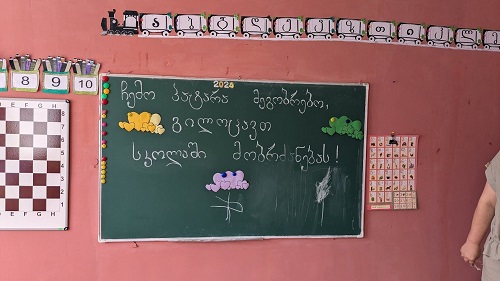 ა ბ გ დ ე ვ ზ თ ი კ ლ
8 9 10
2024
ჩემო პატარა მეგობრებო,
გილოცავთ
სკოლაში მობრძანებას!
8
7
6
5
4
3
2
1
A B C D E F G H